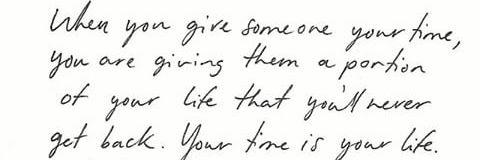 When you give someone your time,
you are giving them a portion
of your life that you'll never
get back. Your time is your life.